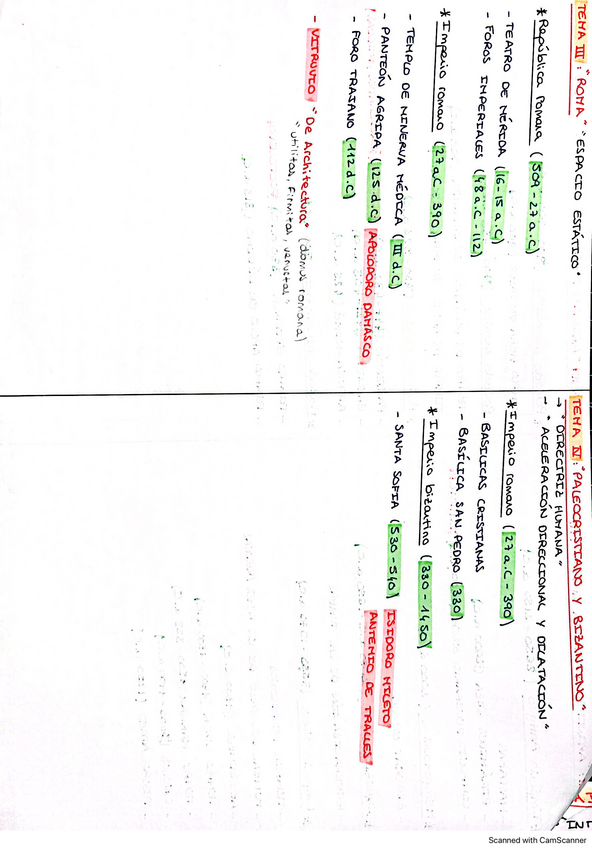 TEMA III: "ROMA" "ESPACIO ESTÁTICO"
* República Romana (509-27 a.C)
- TEATRO DE MÉRIDA (16-15 a.C)
- FOROS IMPERIALES (48 a.C - 112)
* Imperio romano (27 a.C - 390)
- TEMPLO DE MINERVA MÉDICA (III d.C)
- PANTEÓN AGRIPA (125 d.C) APOLODORO DAMASCO
- FORO TRAJANO (112 d.C)
- VITRUVIO "De Architectura" (domus romana)
"utilitas, firmitas, venustas"
TEMA IV: "PALEOCRISTIANO Y BIZANTINO"
→ "DIRECTRIZ HUMANA"
- "ACELERACIÓN DIRECCIONAL Y DILATACIÓN"
* Imperio romano (27 a.C - 390)
- BASILICAS CRISTIANAS
- BASÍLICA SAN PEDRO (330)
* Imperio bizantino (330 - 1450)
- SANTA SOFIA (530-540) ISIDORO MILETO
ANTEMIO DE TRALLES
Scanned with CamScanner